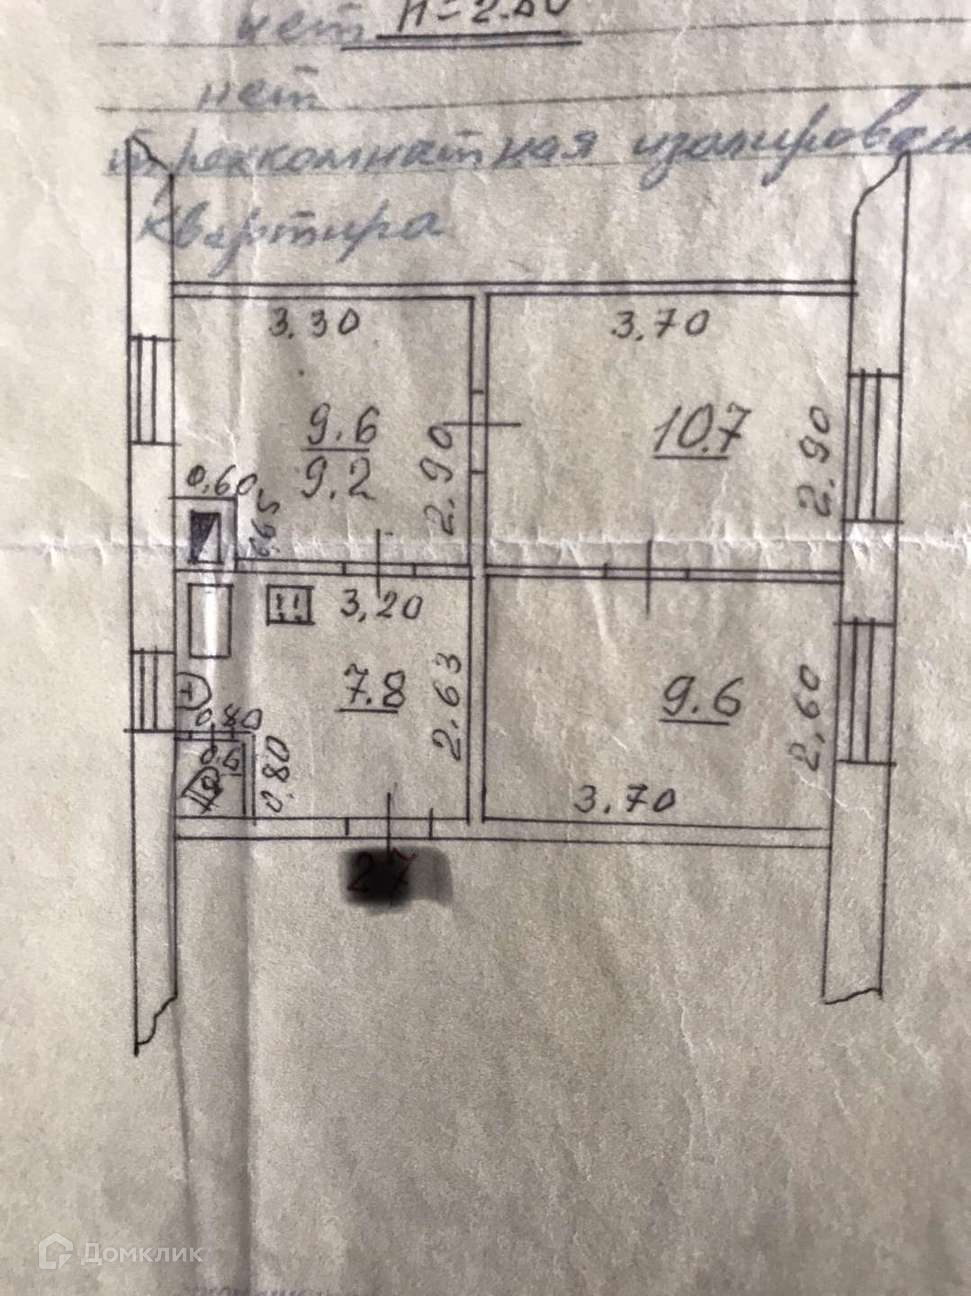 нет H=2.60
нет
трехкомнатная изолирован
квартира
3.30
3.70
9.6
9.2
2.90
10.7
2.90
0.60
0.65
3,20
7.8
2.63
9.6
2,60
0.80
0.6
0.80
3.70
27
Домклик